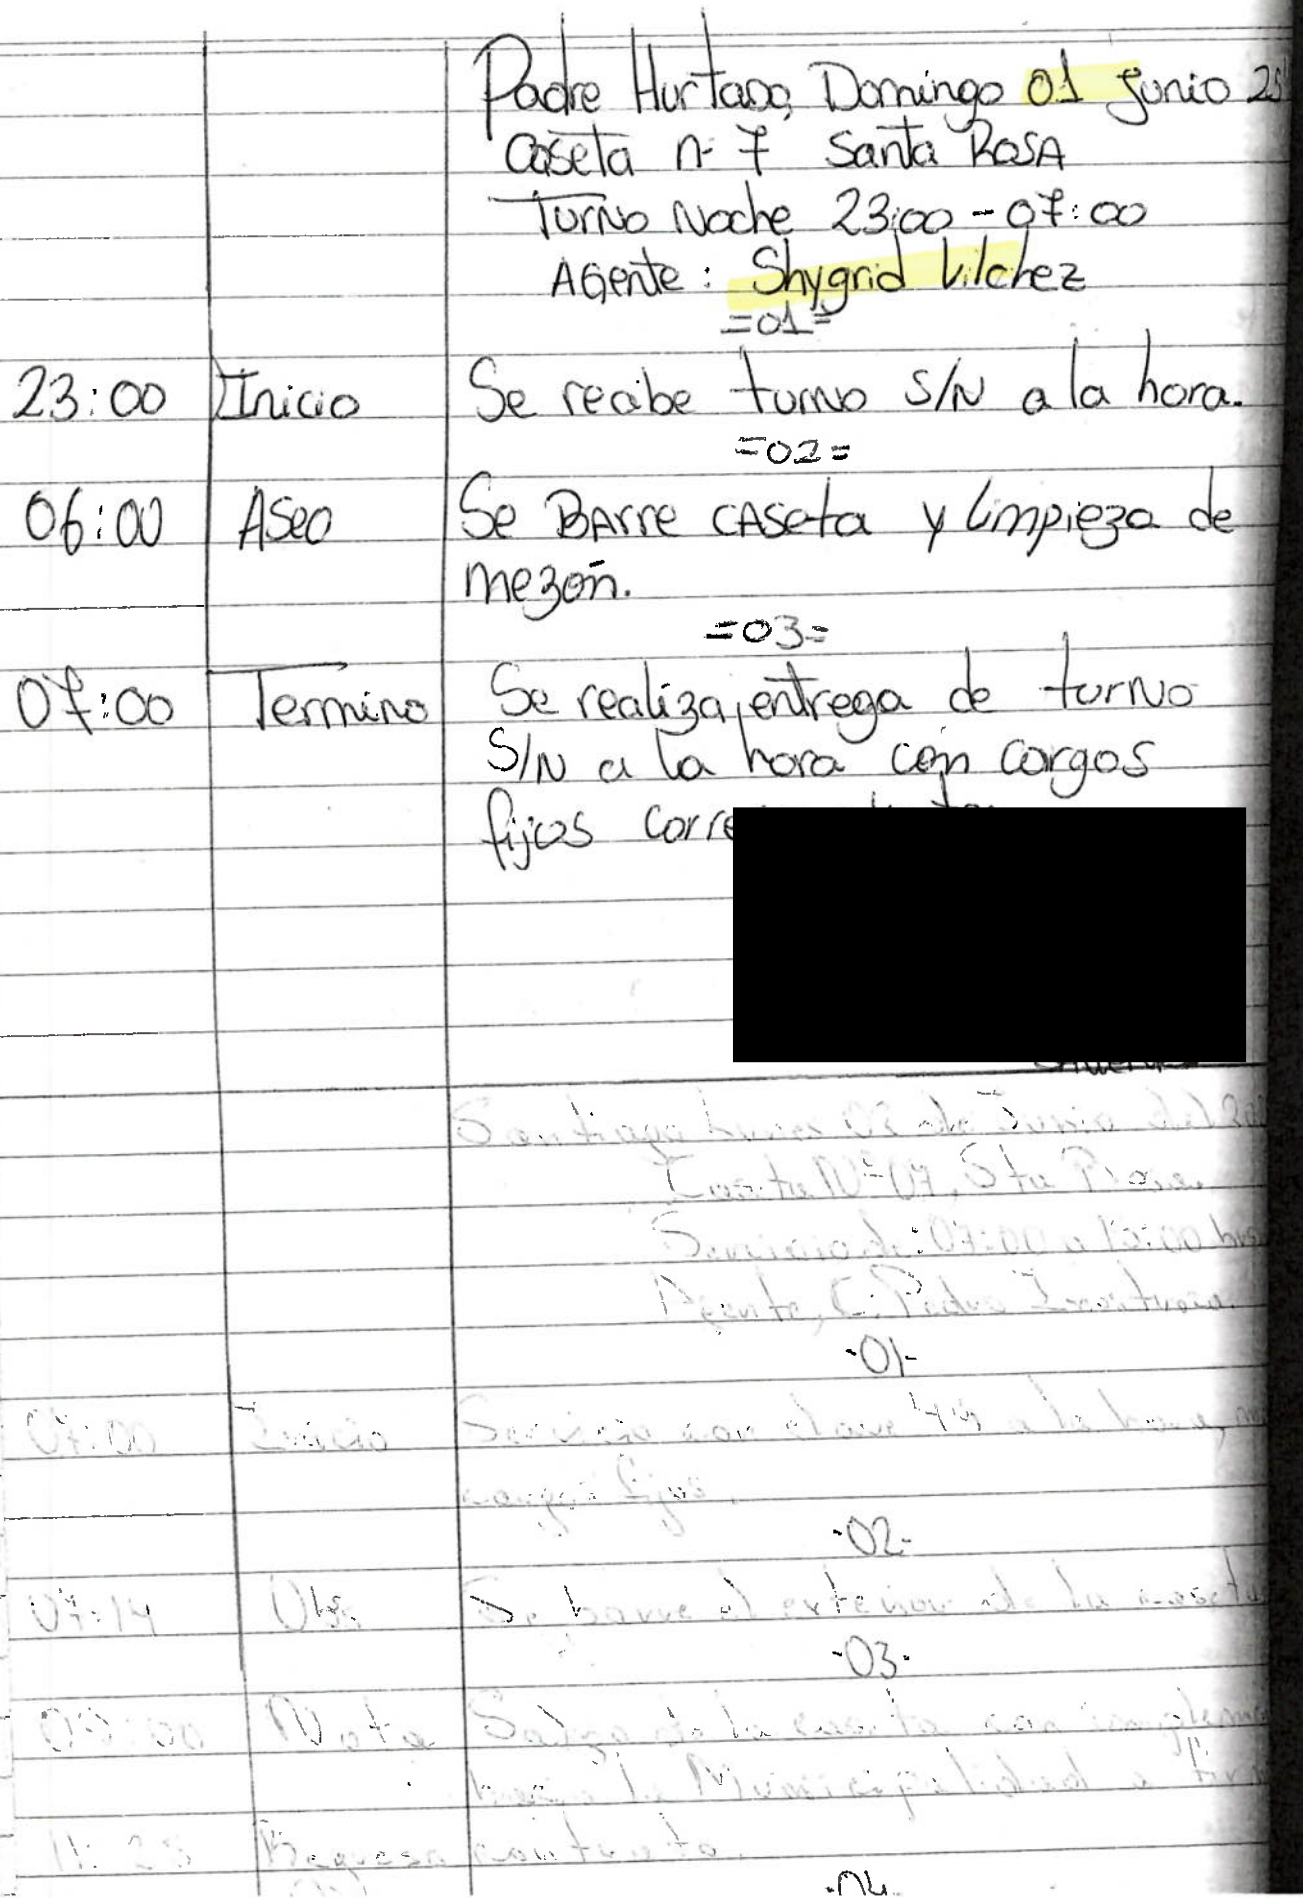 Padre Hurtado, Domingo 01 Junio 25
Caseta n- 7 Santa ROSA
Turno Noche 23:00 - 07:00
AGente: Shygrid Vilchez
=01=
23:00 Inicio Se recibe turno S/N a la hora.
=02=
06:00 ASeo Se BArre CASeta y limpieza de
mezón.
=03=
07:00 Termino Se realiza entrega de turno
S/N a la hora con cargos
fijos
Santiago Lunes 02 de Junio del
Caseta Nº 07, Sta Rosa
Servicio de: 07:00 a 15:00 hrs
Agente, C. Pedro
-01-
07:00 Inicio Servicio con clave a la hora,
cargos fijos.
-02-
07:14 Obs. Se barre el exterior de la caseta
-03-
Nota Salgo de la caseta con
hacia la Municipalidad a
Regreso contrato.
-04-